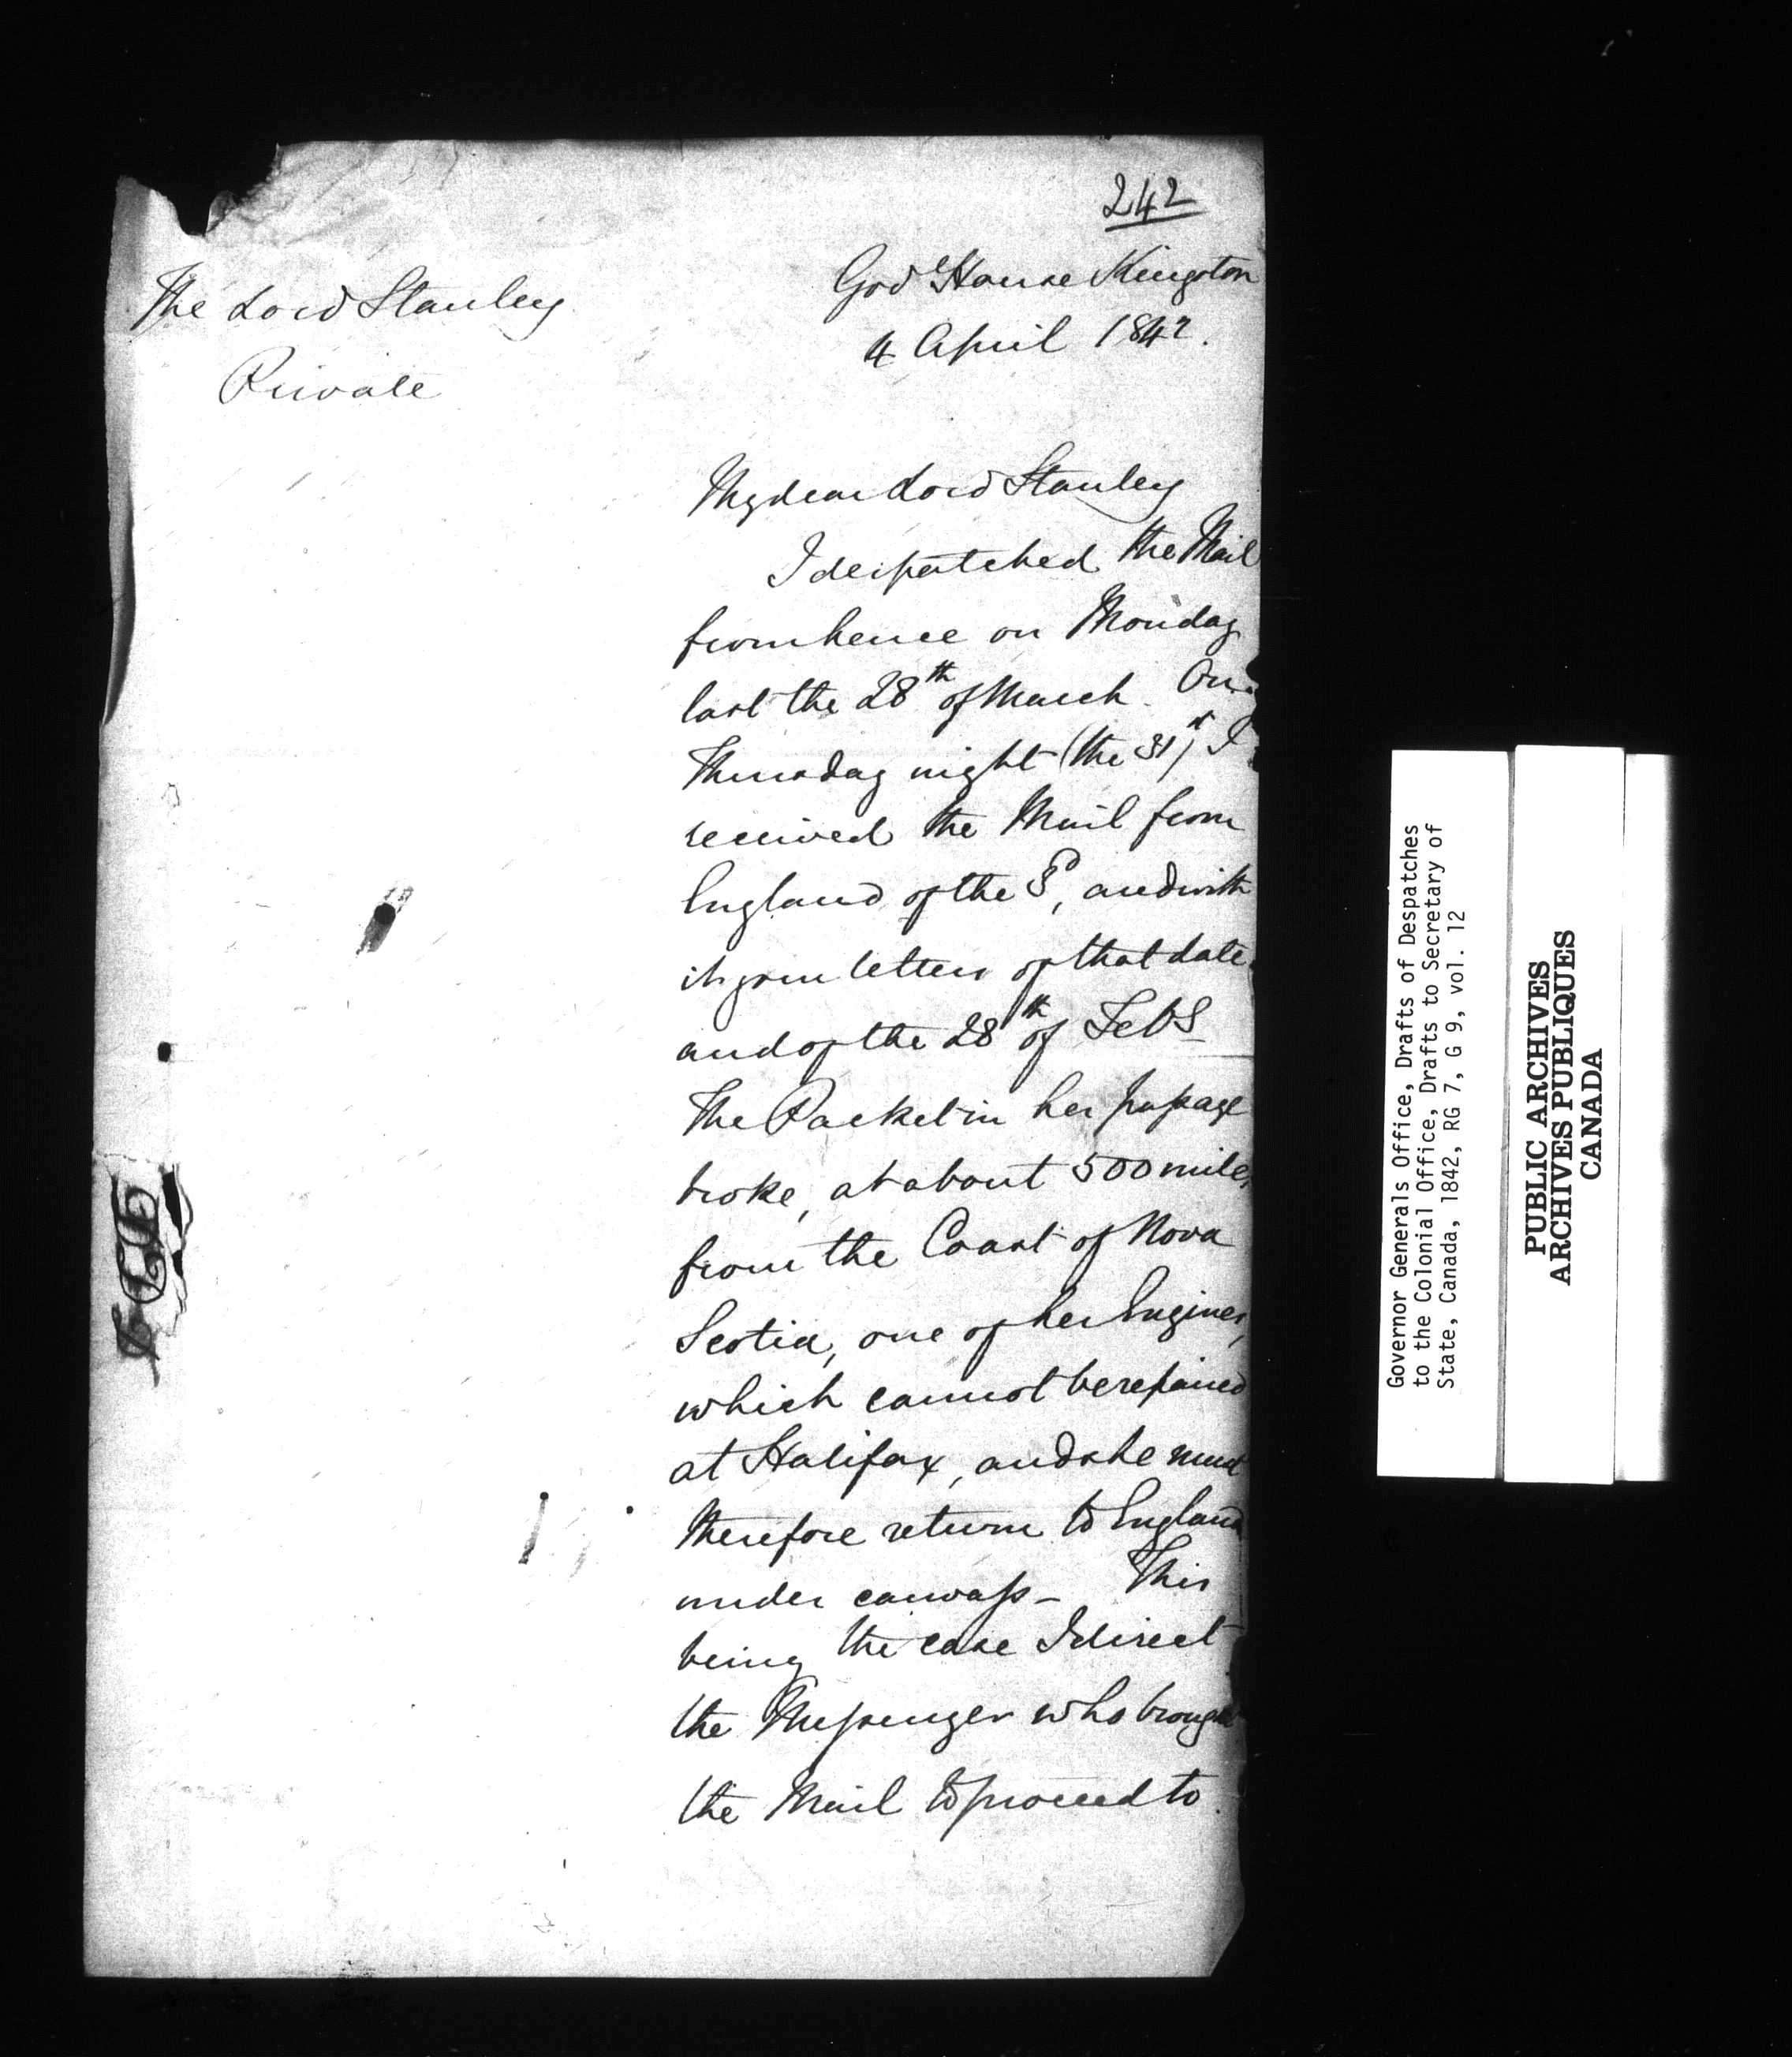 242
The Lord Stanley
Private
Govt House Kingston
4 April 1842.
My dear Lord Stanley
I despatched the Mail
from hence on Monday
last the 28th of March. On
Thursday night (the 31st) I
received the Mail from
England of the 3d, and with
it your letters of that date
and of the 28th of Feby
The Packet in her passage
broke, at about 500 miles
from the Coast of Nova
Scotia, one of her Engines,
which cannot be repaired
at Halifax, and she must
therefore return to England
under canvass - This
being the case I direct
the Messenger who brought
the Mail to proceed to
Governor Generals Office, Drafts of Despatches
to the Colonial Office, Drafts to Secretary of
State, Canada, 1842, RG 7, G 9, vol. 12
PUBLIC ARCHIVES
ARCHIVES PUBLIQUES
CANADA